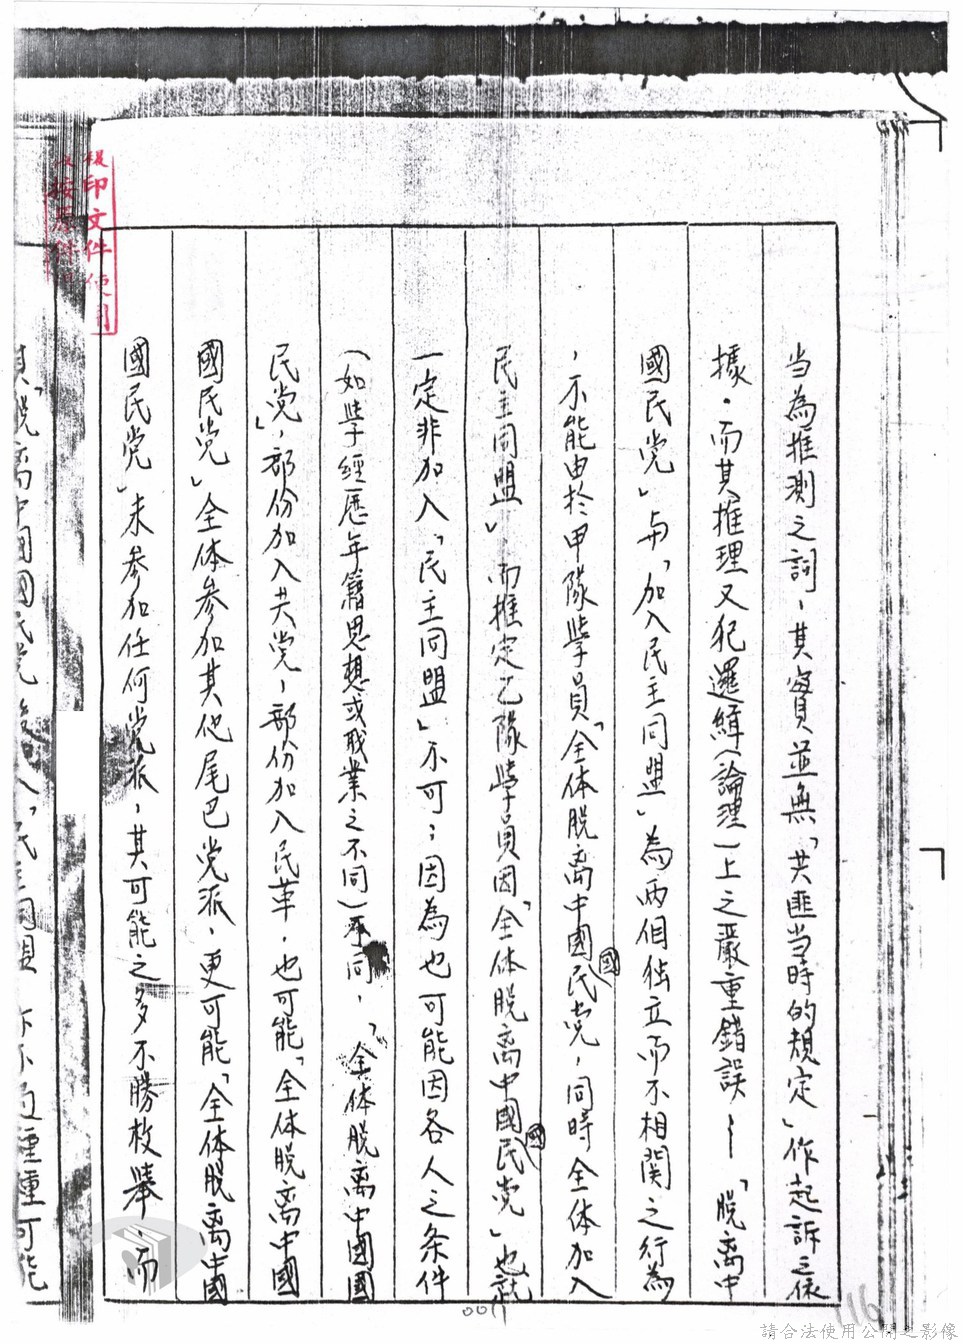 当為推測之詞，其實並無「共匪当時的規定」作起訴之依
據。而其推理又犯邏緝（論理）上之嚴重錯誤——「脫离中
國民党」与「加入民主同盟」為兩個独立而不相関之行為
，不能由於甲隊學員「全体脫离中國國民党，同時全体加入
民主同盟」，而推定乙隊學員因「全体脫离中國國民党」也就
一定非加入「民主同盟」不可；因為也可能因各人之条件
（如學經歷年籍思想或职業之不同）不同，「全体脫离中國國
民党」，部份加入共党，部份加入民革，也可能「全体脫离中國
國民党」全体参加其他尾巴党派，更可能「全体脫离中國
國民党」未参加任何党派，其可能之多不勝枚舉，而
「脫离中國國民党
重可能
印文件使用
0011
116
請合法使用公開之影像